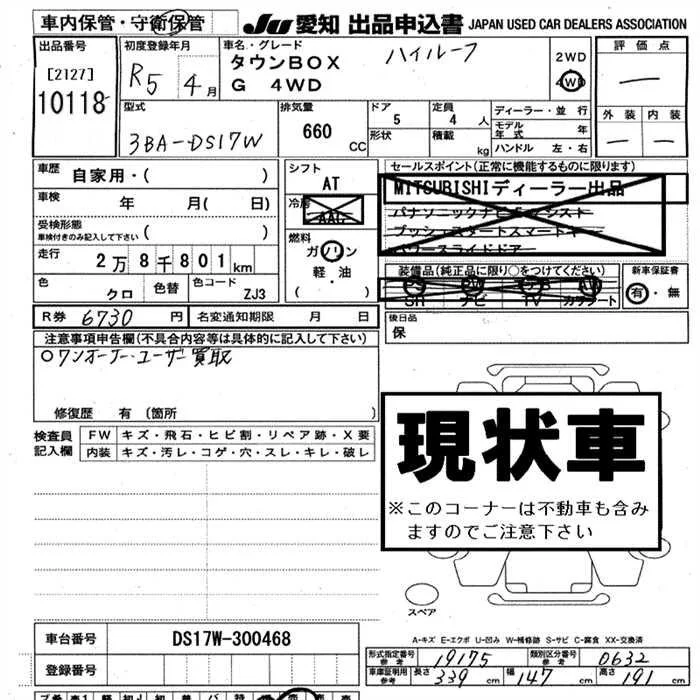 車内保管・守衛保管
JU 愛知 出品申込書 JAPAN USED CAR DEALERS ASSOCIATION
出品番号
[2127]
10118
初度登録年月
R5 4月
車名・グレード
タウンBOX ハイルーフ
G 4WD
2WD
4WD
評価点
—
外装 内装
— —
型式
3BA-DS17W
排気量
660 CC
ドア
5
形状
定員
4 人
積載
kg
ディーラー・並行
モデル年式 年
ハンドル 左・右
車歴
自家用・( )
車検 年 月( 日)
受検形態
車検付きのみ記入して下さい ( )
走行
2万8千801km
色
クロ
色替
色コード
ZJ3
シフト
AT
冷房
AAC
燃料
ガソリン
軽・油
( )
セールスポイント(正常に機能するものに限ります)
MITSUBISHIディーラー出品
パナソニックナビ
プッシュスタートスマートキー
パワースライドドア
装備品(純正品に限り○をつけてください)
SR ナビ TV カワシート
新車保証書
有・無
R券 6730 円
名変通知期限 月 日
後日品
保
注意事項申告欄(不具合内容等は具体的に記入して下さい)
○ワンオーナー・ユーザー買取
修復歴 有 (箇所
検査員記入欄
FW キズ・飛石・ヒビ割・リペア跡・X要
内装 キズ・汚レ・コゲ・穴・スレ・キレ・破レ
現状車
※このコーナーは不動車も含み
ますのでご注意下さい
スペア
A-キズ E-エクボ U-凹み W-補修跡 S-サビ C-腐食 XX-交換済
車台番号
DS17W-300468
登録番号
形式指定番号
参考
19175
類別区分番号
参考
0632
車庫証明用
参考
長さ 339 cm 幅 147 cm 高さ 191 cm